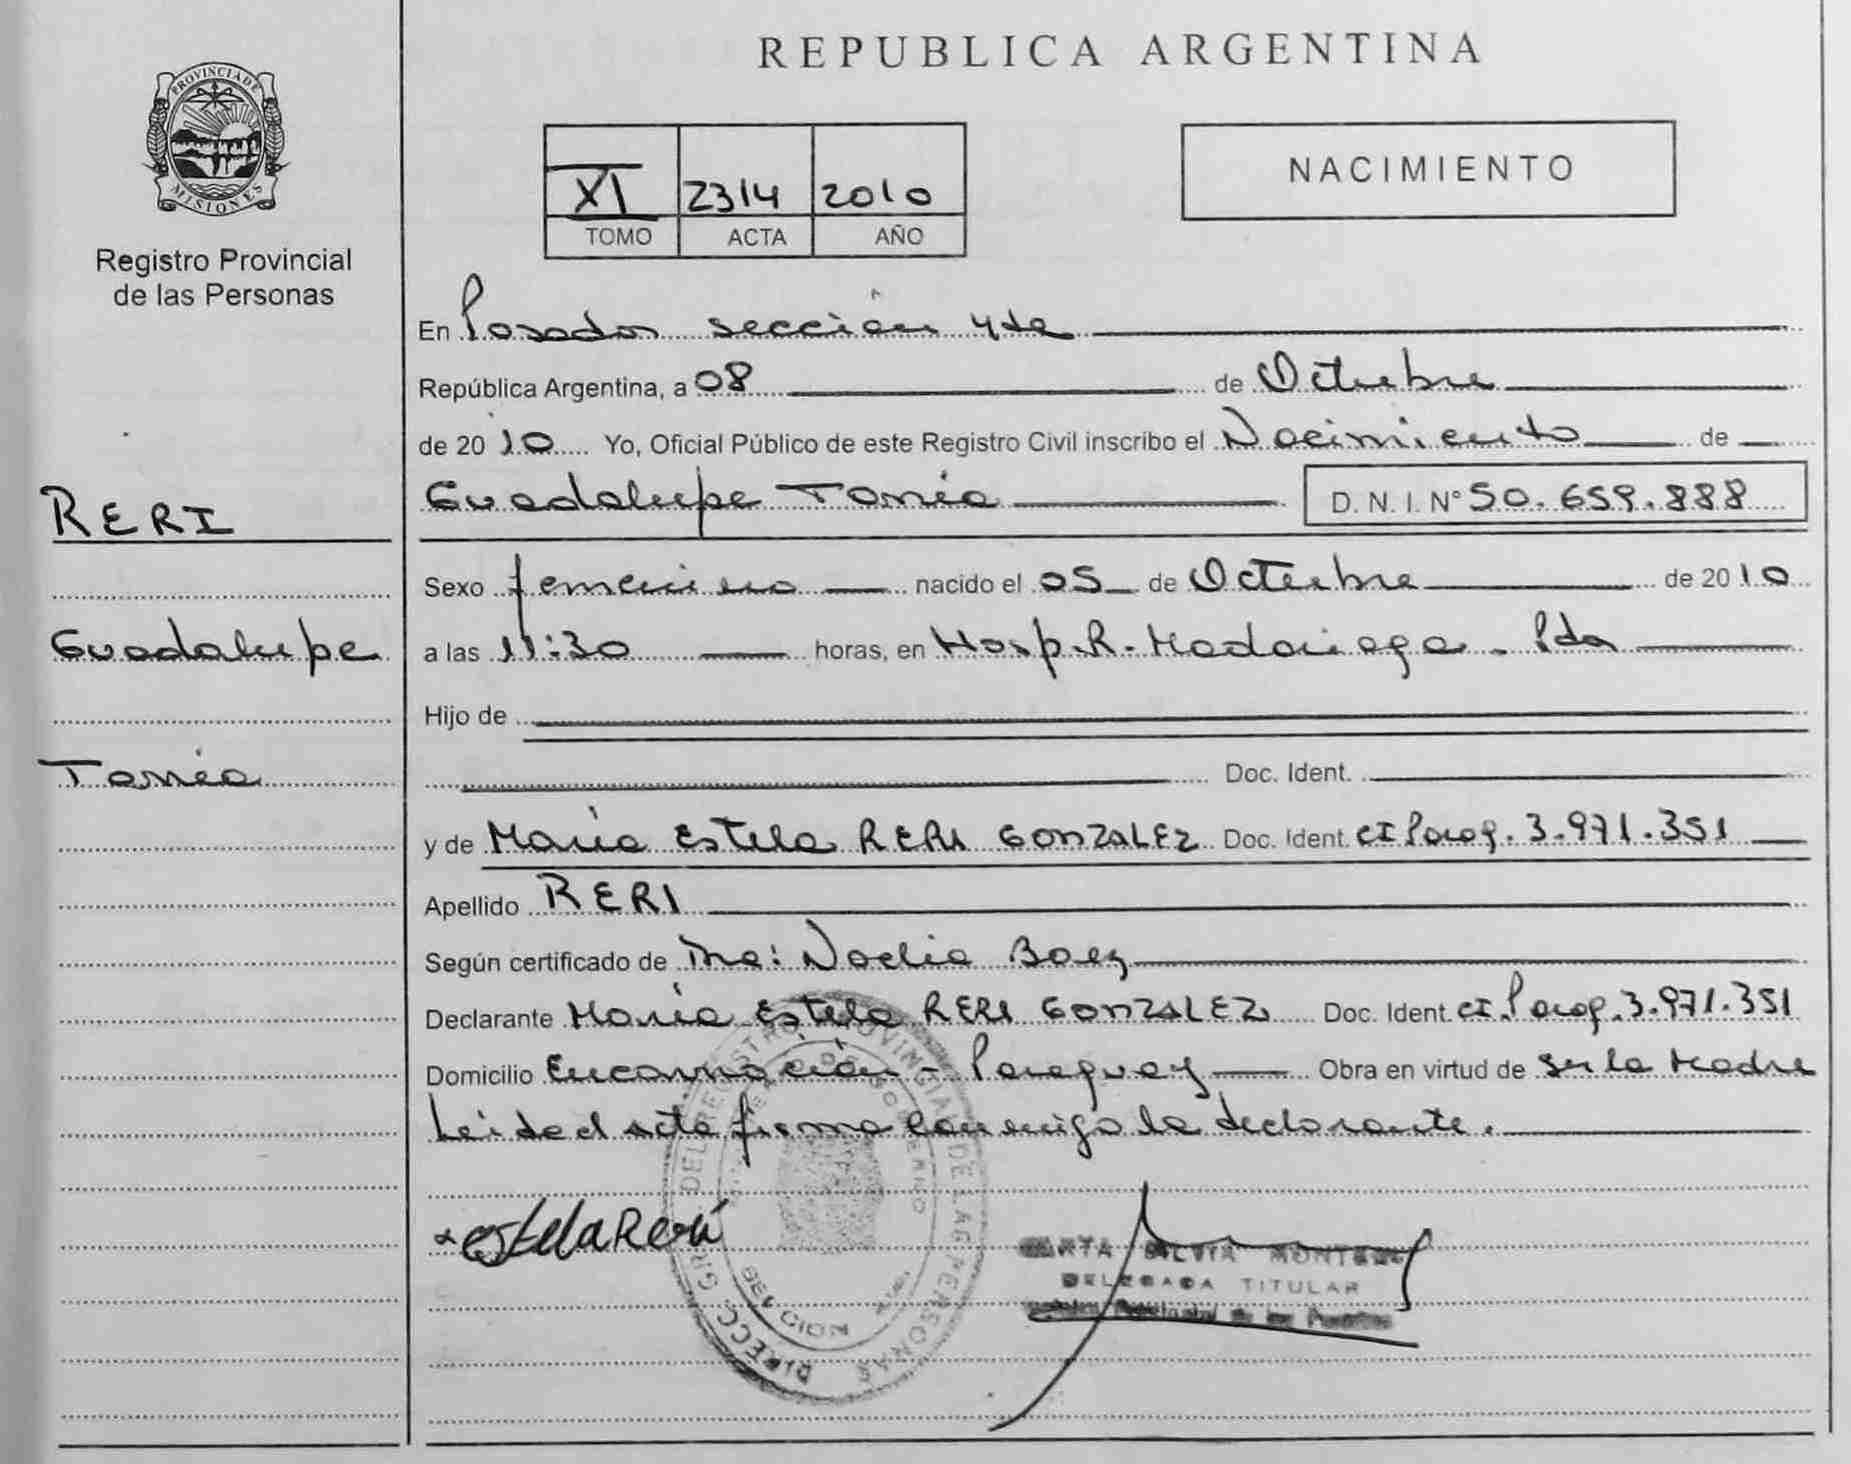 REPUBLICA ARGENTINA
PROVINCIA DE
MISIONES
Registro Provincial
de las Personas
XI 2314 2010
TOMO ACTA AÑO
NACIMIENTO
En Posadas sección 4ta
República Argentina, a 08 de Octubre
de 2010 Yo, Oficial Público de este Registro Civil inscribo el Nacimiento de
Guadalupe Tania D. N. I. N° 50.659.888
RERI
Guadalupe
Tania
Sexo femenino nacido el 05 de Octubre de 2010
a las 11:30 horas, en Hosp. R. Madariaga - Pdas
Hijo de
Doc. Ident.
y de María Estela RERI GONZALEZ Doc. Ident. CI Parag. 3.971.351
Apellido RERI
Según certificado de Noelia Baez
Declarante María Estela RERI GONZALEZ Doc. Ident. CI. Parag. 3.971.351
Domicilio Encarnación - Paraguay Obra en virtud de ser la Madre
Leída el acta firma conmigo la declarante.
estela Reri
SILVIA
DELEGADA TITULAR
DEL REGISTRO PROVINCIAL DE LAS PERSONAS